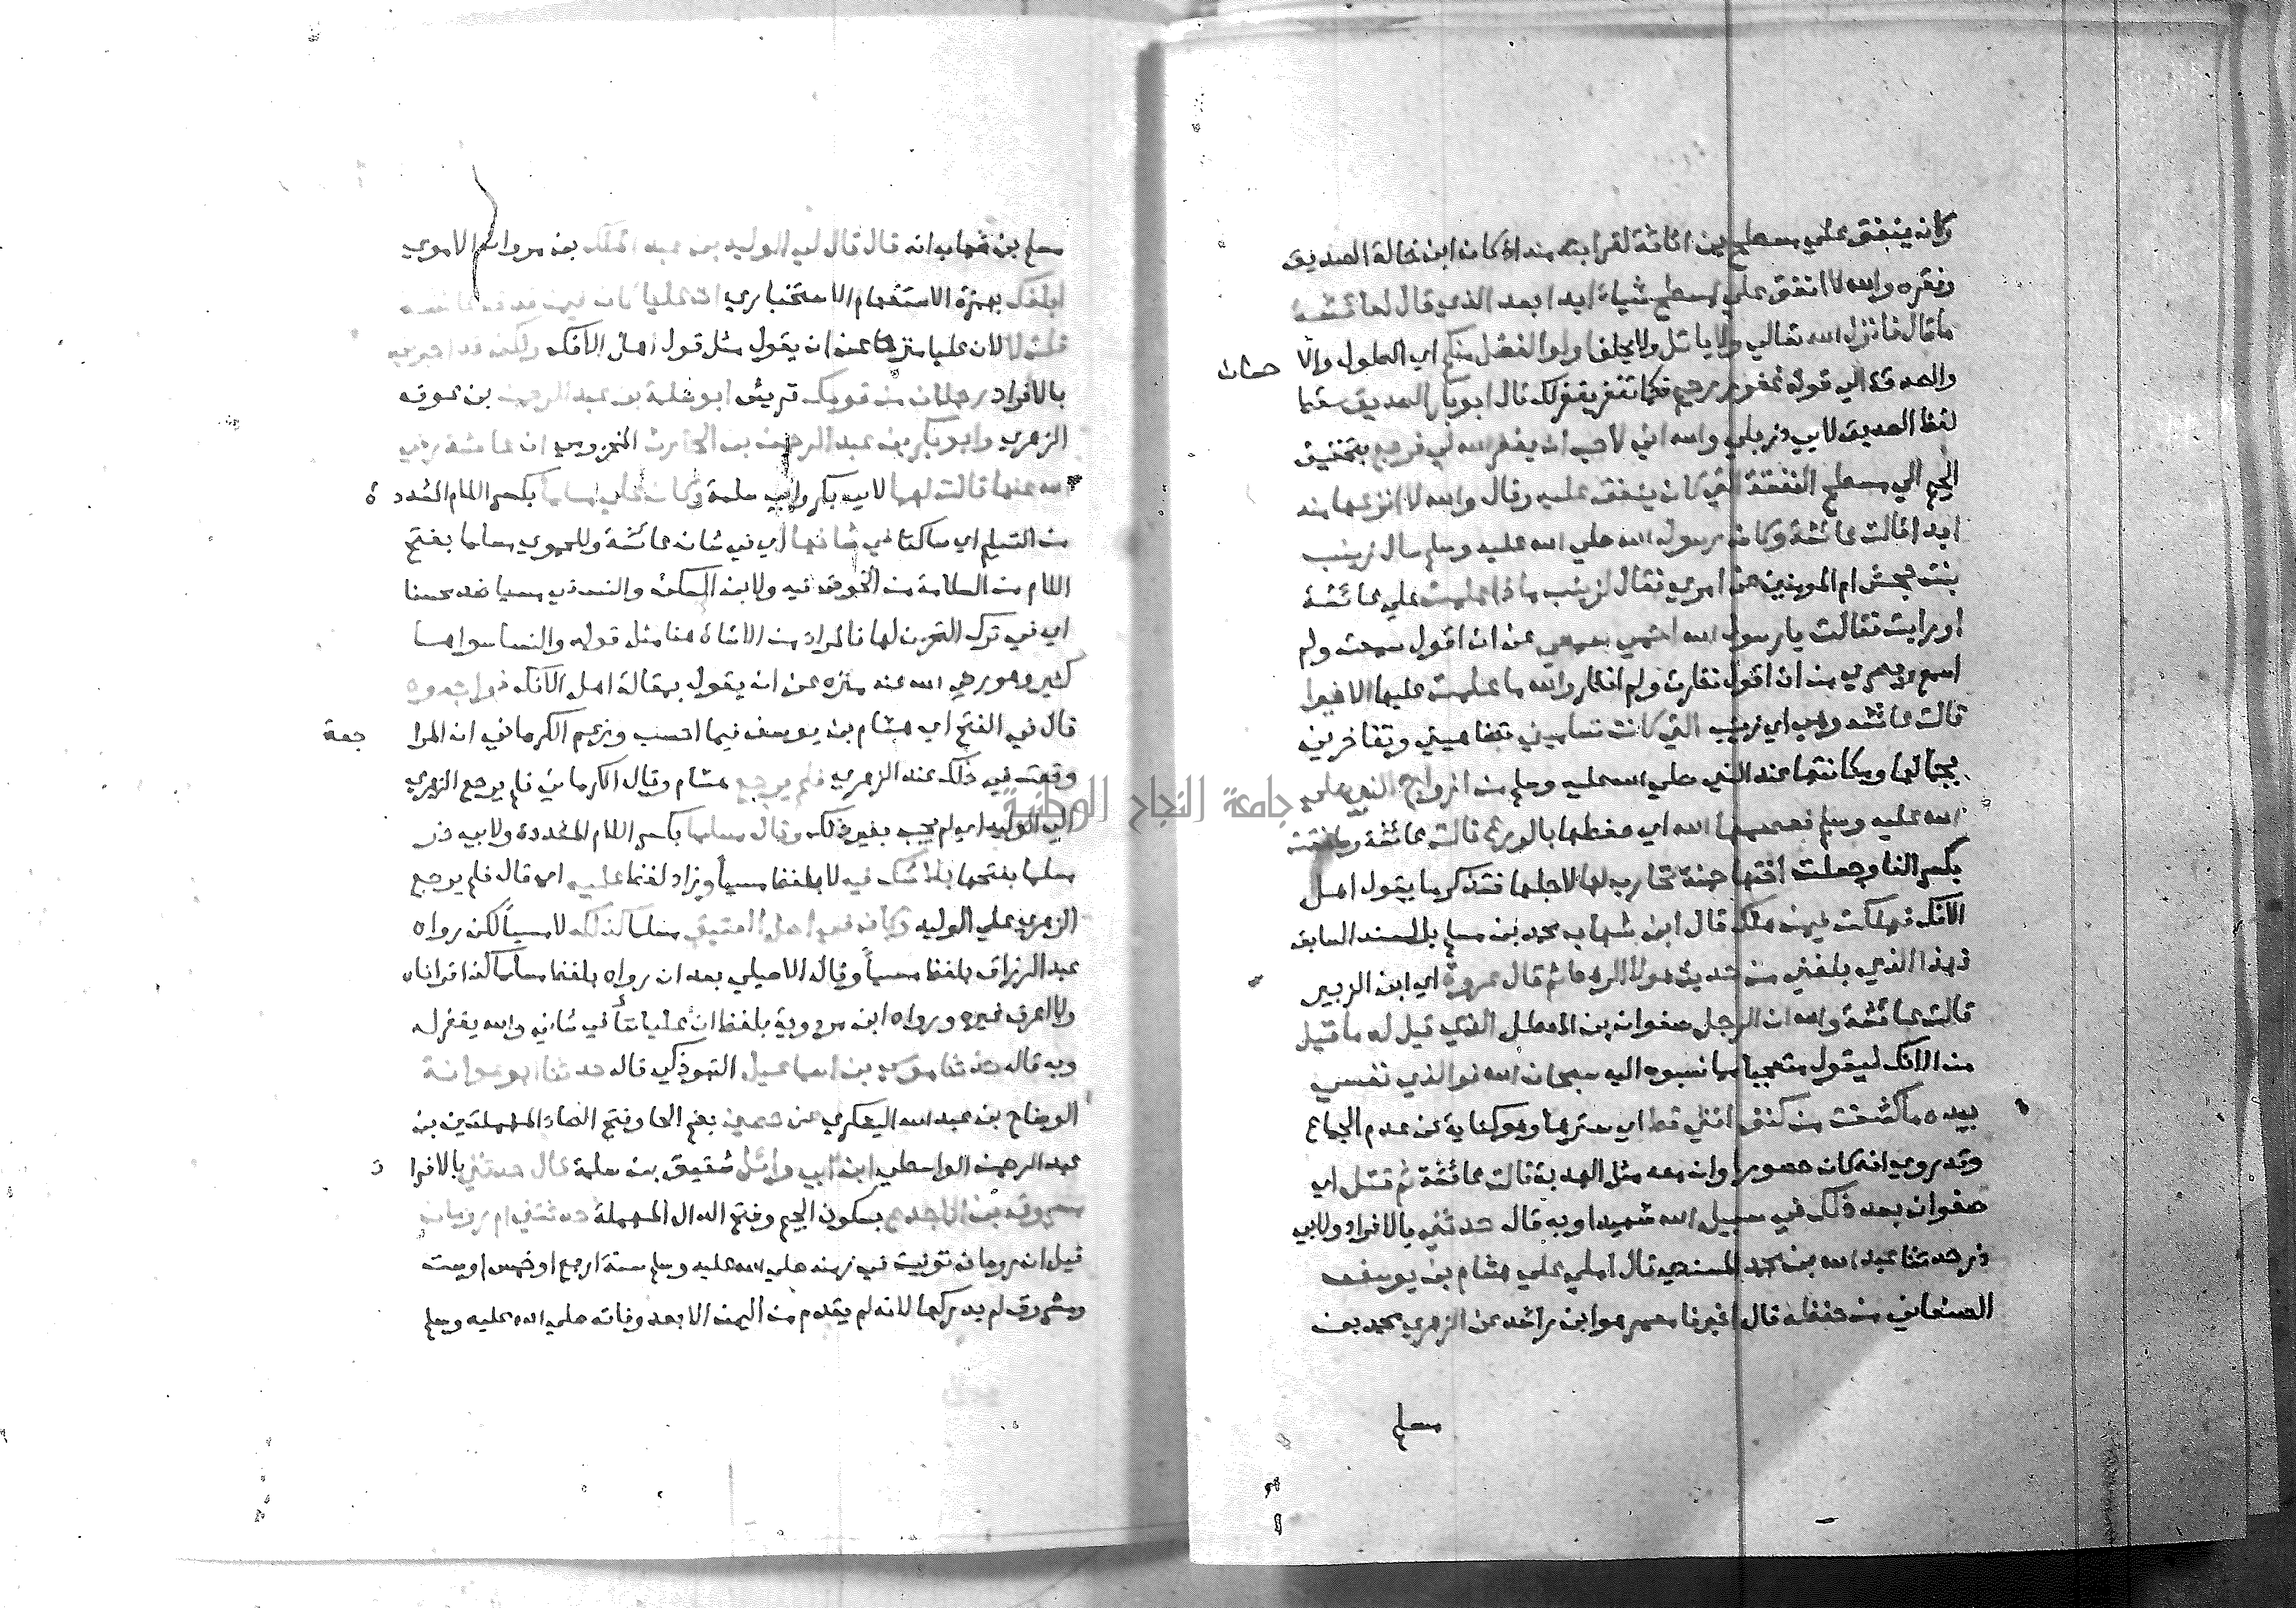 وكان ينفق علي مسطح بن اثاثة لقرابته منه اذ كان ابن خالة الصديق
وفقره والله لا انفق علي مسطح شياء ابدا بعد الذي قال لعائشة
ما قال فانزل الله تعالي ولا ياتل ولا يحلف اولوا الفضل منكم اي الطول والا حسان
والصدقة الي قوله غفور رحيم فكما تغفر يغفر لك قال ابو بكر الصديق
لفظ الصديق لابي ذر بلي والله اني لاحب ان يغفر الله لي فرجع بتخفيف
الجيم الي مسطح النفقة التي كان ينفق عليه وقال والله لا انزعها منه
ابدا قالت عائشة وكان رسول الله صلي الله عليه وسلم سال زينب
بنت جحش ام المومنين عن امري فقال لزينب ماذا علمت علي عائشة
او رايت فقالت يا رسول الله احمي سمعي عن ان اقول سمعت ولم
اسمع وبصري من ان اقول نظرت ولم انظر والله ما علمت عليها الا خيرا
قالت عائشة وهي اي زينب التي كانت تساميني تضاهيني وتفاخرني
بجمالها ومكانتها عند النبي صلي الله عليه وسلم من ازواج النبي صلي
الله عليه وسلم فعصمها الله اي حفظها بالورع قالت عائشة وطفقت
بكسر الفا وجعلت اختها حمنة تحارب لها لاجلها فتذكر ما يقول اهل
الافك فهلكت فيمن هلك قال ابن شهاب محمد بن مسلم بالسند السابق
فهذا الذي بلغني من حديث هولا الرهط ثم قال عروة اي ابن الزبير
قالت عائشة والله ان الرجل صفوان بن المعطل الذي قيل له ما قيل
من الافك ليقول متعجبا مما نسبوه اليه سبحان الله فوالذي نفسي
بيده ما كشفت من كنف انثي قط اي سترها وهو كناية عن عدم الجماع
وقد روي انه كان حصورا وان معه مثل الهدبة قالت عائشة ثم قتل اي
صفوان بعد ذلك في سبيل الله شهيدا وبه قال حدثني بالافراد ولابي
ذر حدثنا عبد الله بن محمد المسندي قال املي علي هشام بن يوسف
الصنعاني من حفظه قال اخبرنا معمر هو ابن راشد عن الزهري محمد بن
مسلم
مسلم بن شهاب انه قال قال لي الوليد بن عبد الملك بن مروان الاموي
ابلغك بهمزة الاستفهام الاستخباري ان عليا كان فيمن قذف عائشة
قلت لا لان عليا منزها عن ان يقول مثل قول اهل الافك ولكن قد اخبرني
بالافراد رجلان من قومك قريش ابو سلمة بن عبد الرحمن بن عوف
الزهري وابو بكر بن عبد الرحمن بن الحارث المخزومي ان عائشة رضي
الله عنها قالت لهما لابي بكر وابي سلمة كان علي مسلما بكسر اللام المشددة
من التسليم اي ساكتا في شانها اي في شان عائشة وللحموي مسلما بفتح
اللام من السلامة من الخوض فيه ولابن السكن والنسفي مسيا ضد محسنا
اي في ترك التحزن لها فالمراد من الاساة هنا مثل قوله والنسا سواها
كثير وهو رضي الله عنه منزه عن ان يقول بمقالة اهل الافك فراجعوه
قال في الفتح اي هشام بن يوسف فيما احسب وزعم الكرماني ان المرا جعة
وقعت في ذلك عند الزهري فلم يرجع هشام وقال الكرماني فلم يرجع الزهري
الي الوليد اي لم يجب بغير ذلك وقال مسلما بكسر اللام المشددة ولابي ذر
مسلما بفتحها بلا شك فيه لا بلفظ مسيا وزاد لفظ عليه اي قال فلم يرجع
الزهري علي الوليد وكان في اصل العتيق مسلما كذلك لا مسيا لكن رواه
عبد الرزاق بلفظ مسيا وقال الاصيلي بعد ان رواه بلفظ مسلما كذا قراناه
ولا اعرف غيره ورواه ابن مردوية بلفظ ان عليا سا في شاني والله يغفر له
وبه قال حدثنا موسي بن اسماعيل التبوذكي قال حدثنا ابو عوانة
الوضاح بن عبد الله اليشكري عن حصين بضم الحا وفتح الصاد المهملتين بن
عبد الرحمن الواسطي ابن ابي وائل شقيق بن سلمة قال حدثني بالافرا د
مسروق بن الاجدع بسكون الجيم وفتح الدال المهملة حدثتني ام رومان
قيل ان رومان توفيت في زمنه صلي الله عليه وسلم سنة اربع او خمس او ست
ومسروق لم يدركها لانه لم يقدم من اليمن الا بعد وفاته صلي الله عليه وسلم
جامعة النجاح الوطنية